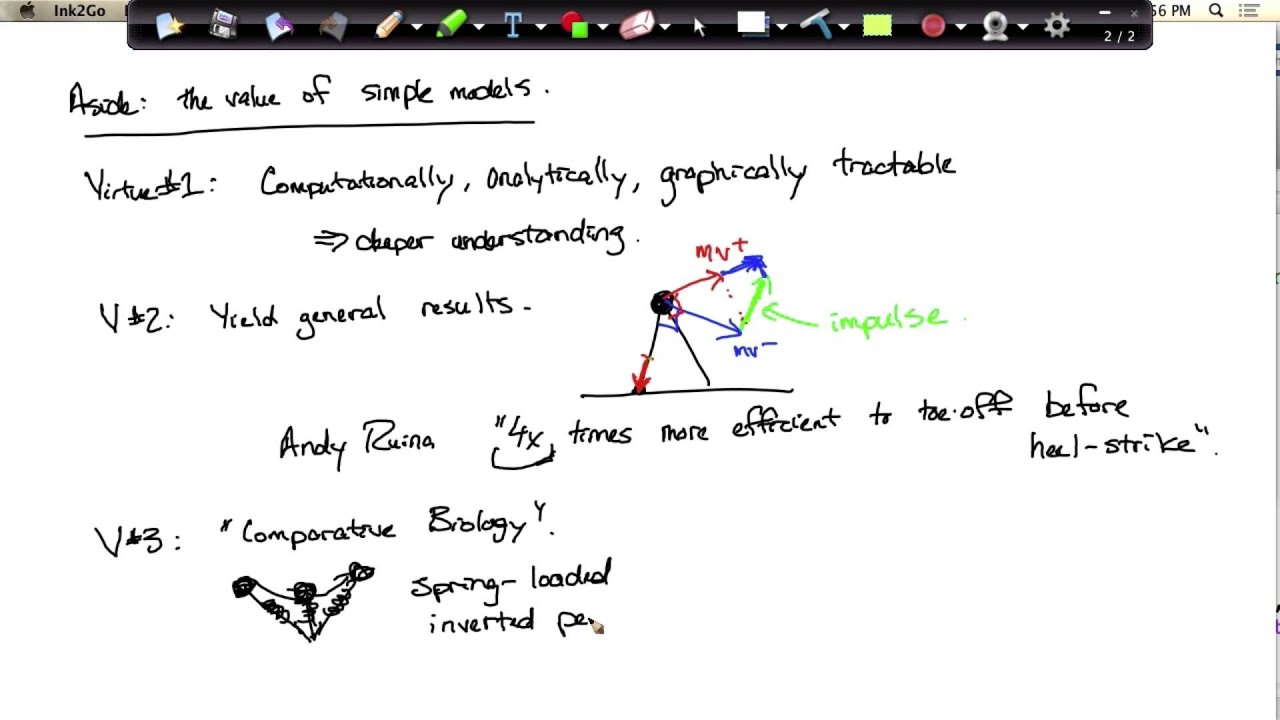 Ink2Go
56 PM
2 / 2
Aside: the value of simple models.
Virtue #1: Computationally, analytically, graphically tractable
⇒ deeper understanding.
mv+
V#2: Yield general results.
impulse.
mv-
Andy Ruina "4x times more efficient to toe-off before
heel-strike".
V#3: "Comparative Biology".
Spring-loaded
inverted pe